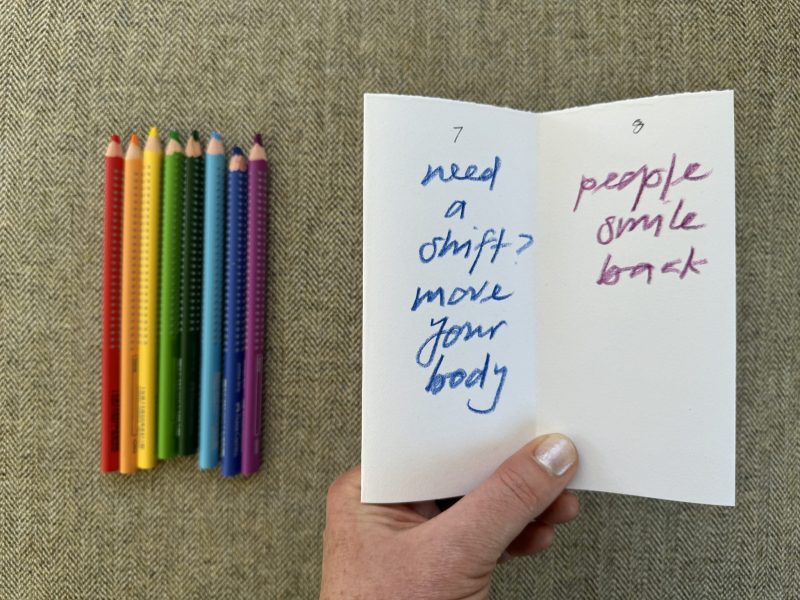 7
need
a
shift?
move
your
body
8
people
smile
back